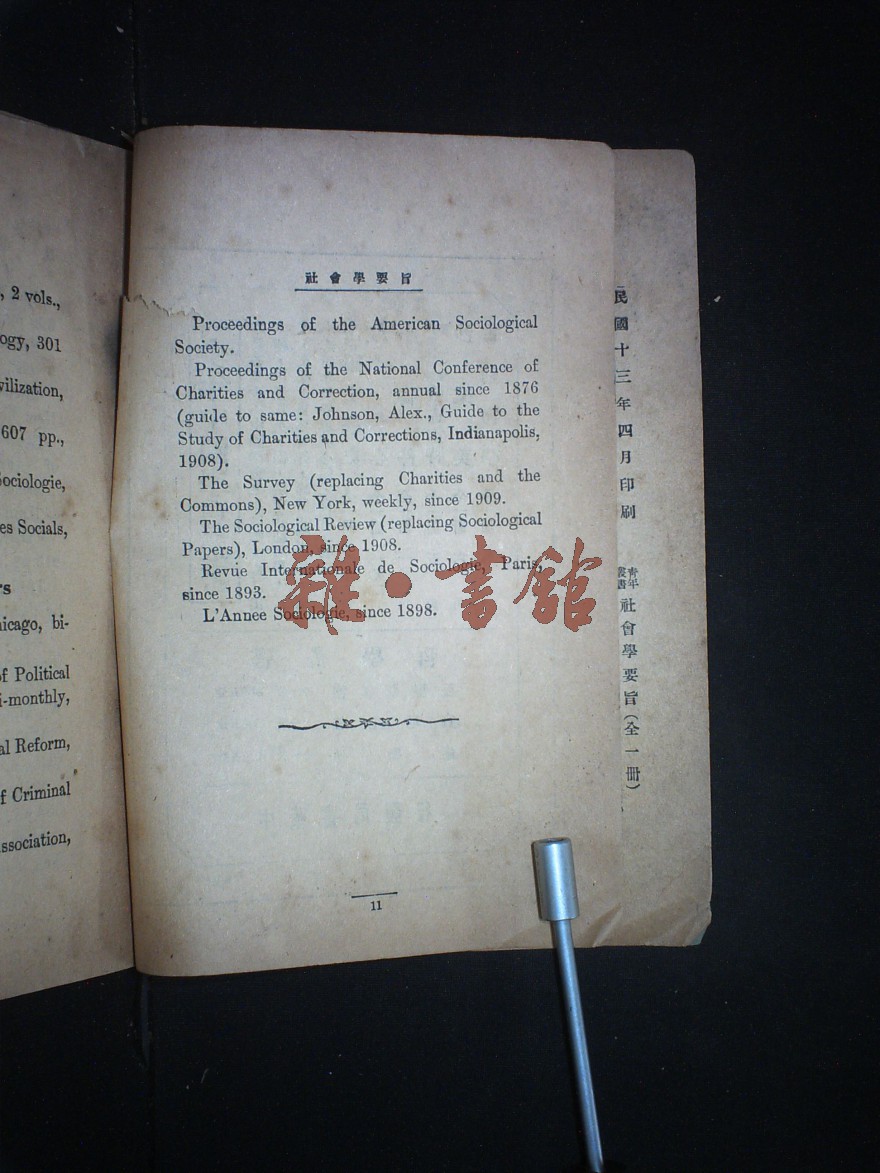 , 2 vols.,
ogy, 301
vilization,
607 pp.,
Sociologie,
es Socials,
rs
hicago, bi-
of Political
i-monthly,
al Reform,
f Criminal
ssociation,
社會學要旨
Proceedings of the American Sociological
Society.
Proceedings of the National Conference of
Charities and Correction, annual since 1876
(guide to same: Johnson, Alex., Guide to the
Study of Charities and Corrections, Indianapolis,
1908).
The Survey (replacing Charities and the
Commons), New York, weekly, since 1909.
The Sociological Review (replacing Sociological
Papers), London, since 1908.
Revue Internationale de Sociologie, Paris,
since 1893.
L'Annee Sociologie, since 1898.
11
民國十三年四月印刷
青年叢書 社會學要旨(全一冊)
雜·書館